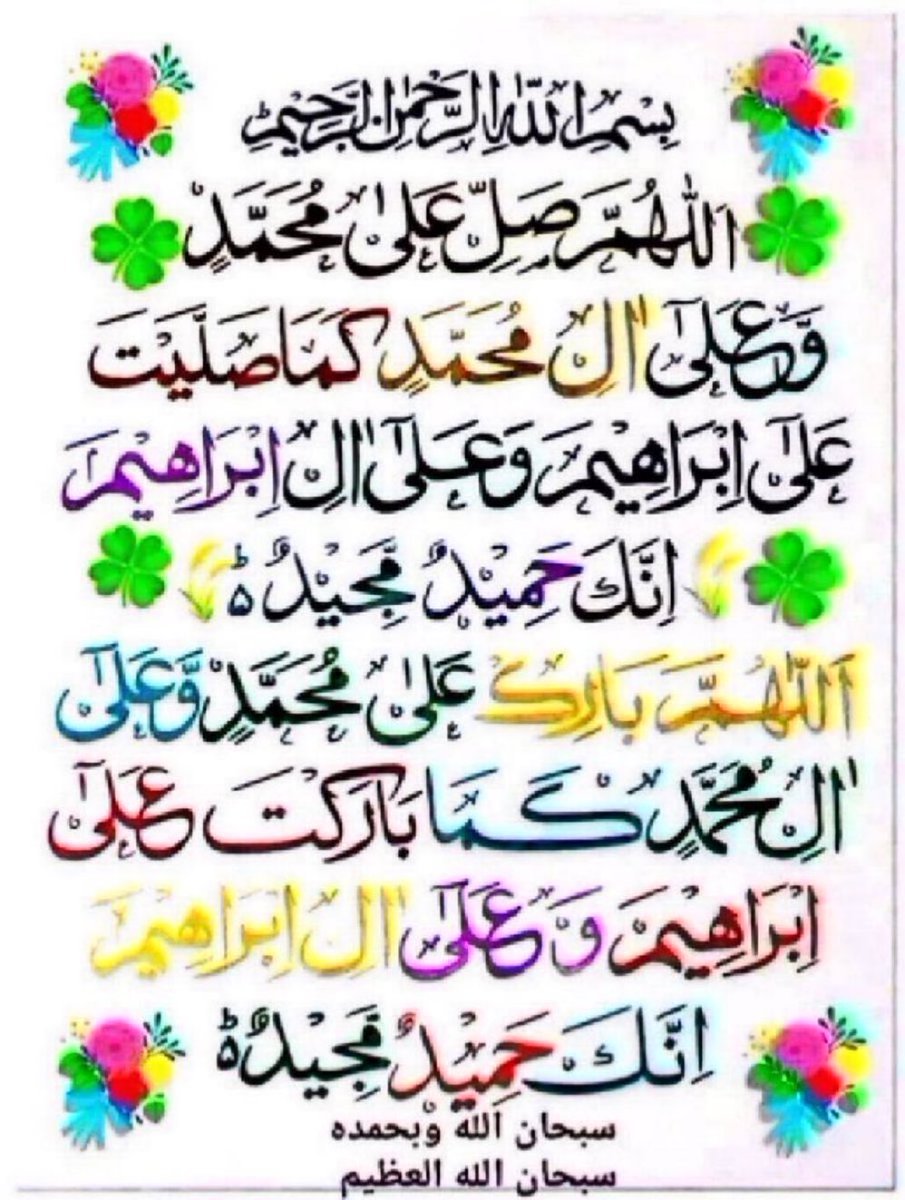 بِسْمِ اللهِ الرَّحْمٰنِ الرَّحِيْمِ
اَللّٰهُمَّ صَلِّ عَلٰى مُحَمَّدٍ
وَّعَلٰٓى اٰلِ مُحَمَّدٍ كَمَا صَلَّيْتَ
عَلٰٓى اِبْرَاهِيْمَ وَعَلٰٓى اٰلِ اِبْرَاهِيْمَ
اِنَّكَ حَمِيْدٌ مَّجِيْدٌ ؕ۵
اَللّٰهُمَّ بَارِكْ عَلٰى مُحَمَّدٍ وَّعَلٰٓى
اٰلِ مُحَمَّدٍ كَمَا بَارَكْتَ عَلٰٓى
اِبْرَاهِيْمَ وَعَلٰٓى اٰلِ اِبْرَاهِيْمَ
اِنَّكَ حَمِيْدٌ مَّجِيْدٌ ؕ۵
سبحان الله وبحمده
سبحان الله العظيم